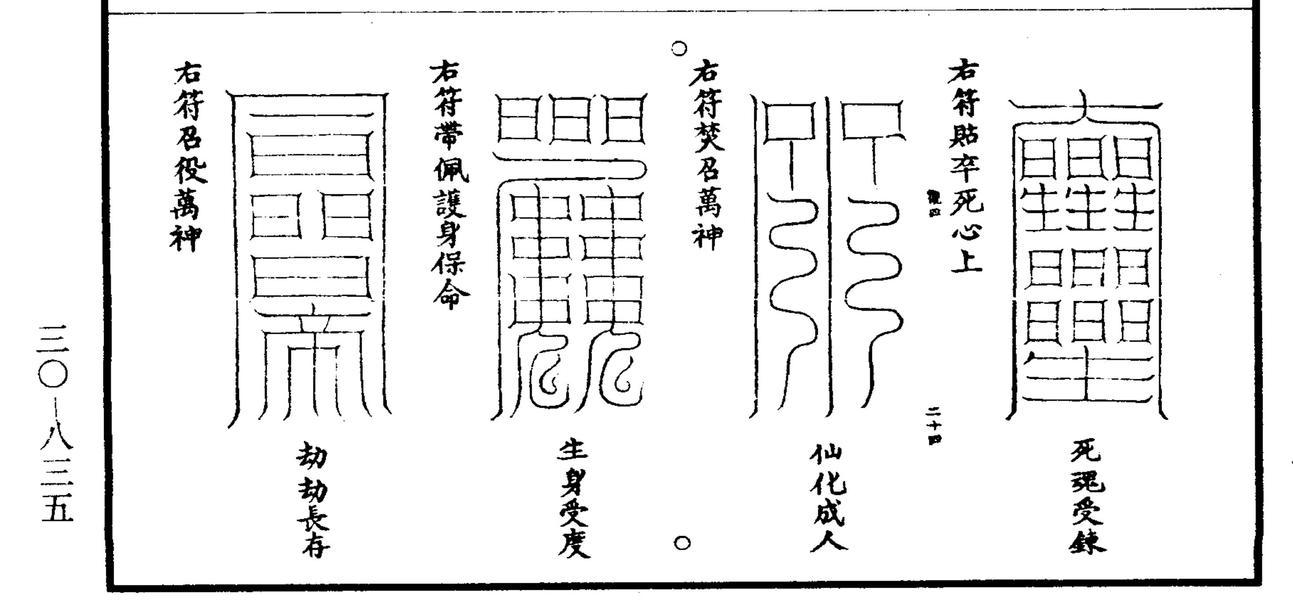 死魂受鍊
右符貼卒死心上
二十四
仙化成人
右符焚召萬神
生身受度
右符帶佩護身保命
劫劫長存
右符召役萬神
三〇—八三五